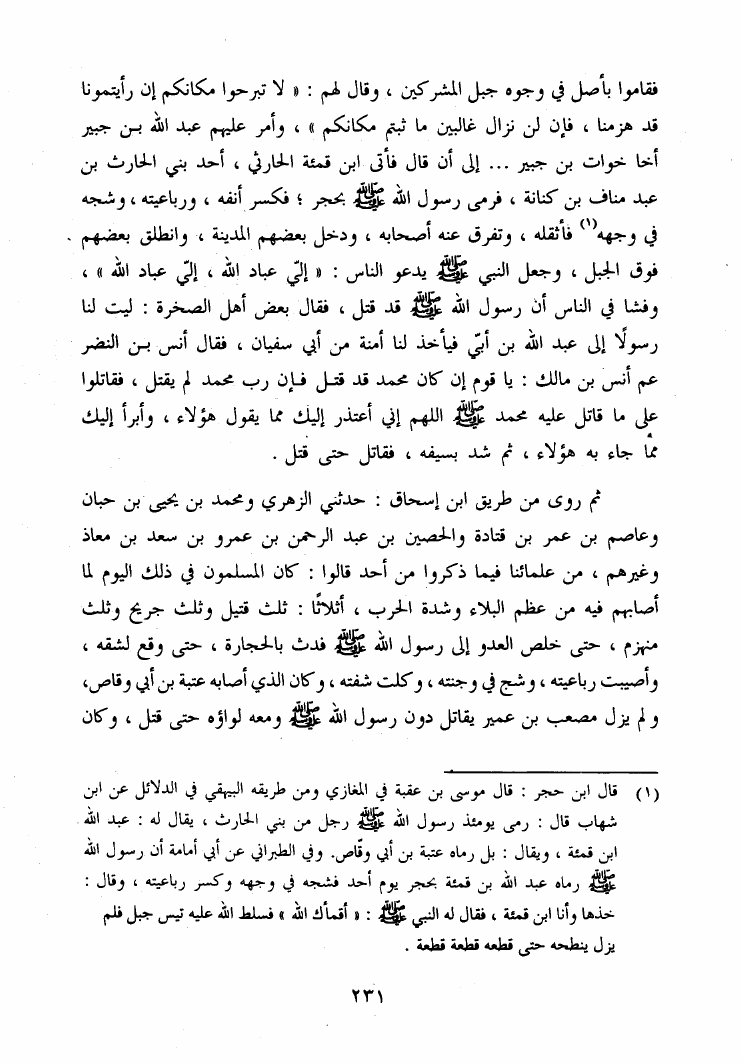 فقاموا بأصل في وجوه جبل المشركين ، وقال لهم : « لا تبرحوا مكانكم إن رأيتمونا
قد هزمنا ، فإن لن نزال غالبين ما ثبتم مكانكم » ، وأمر عليهم عبد الله بـن جبير
أخا خوات بن جبير ... إلى أن قال فأتى ابن قمئة الحارثي ، أحد بني الحارث بن
عبد مناف بن كنانة ، فرمى رسول الله ﷺ بحجر ؛ فكسر أنفه ، ورباعيته ، وشجه
في وجهه(١) فأثقله ، وتفرق عنه أصحابه ، ودخل بعضهم المدينة ، وانطلق بعضهم
فوق الجبل ، وجعل النبي ﷺ يدعو الناس : « إليّ عباد الله ، إليّ عباد الله » ،
وفشا في الناس أن رسول الله ﷺ قد قتل ، فقال بعض أهل الصخرة : ليت لنا
رسولًا إلى عبد الله بن أبيّ فيأخذ لنا أمنة من أبي سفيان ، فقال أنس بـن النضر
عم أنس بن مالك : يا قوم إن كان محمد قد قتـل فـإن رب محمد لم يقتل ، فقاتلوا
على ما قاتل عليه محمد ﷺ اللهم إني أعتذر إليك مما يقول هؤلاء ، وأبرأ إليك
ممّا جاء به هؤلاء ، ثم شد بسيفه ، فقاتل حتى قتل .
ثم روى من طريق ابن إسحاق : حدثني الزهري ومحمد بن يحيى بن حبان
وعاصم بن عمر بن قتادة والحصين بن عبد الرحمن بن عمرو بن سعد بن معاذ
وغيرهم ، من علمائنا فيما ذكروا من أحد قالوا : كان المسلمون في ذلك اليوم لما
أصابهم فيه من عظم البلاء وشدة الحرب ، أثلاثًا : ثلث قتيل وثلث جريح وثلث
منهزم ، حتى خلص العدو إلى رسول الله ﷺ فدث بالحجارة ، حتى وقع لشقه ،
وأصيبت رباعيته ، وشج في وجنته ، وكلت شفته ، وكان الذي أصابه عتبة بن أبي وقاص،
ولم يزل مصعب بن عمير يقاتل دون رسول الله ﷺ ومعه لواؤه حتى قتل ، وكان
(١) قال ابن حجر : قال موسى بن عقبة في المغازي ومن طريقه البيهقي في الدلائل عن ابن
شهاب قال : رمى يومئذ رسول الله ﷺ رجل من بني الحارث ، يقال له : عبد الله
ابن قمئة ، ويقال : بل رماه عتبة بن أبي وقّاص. وفي الطبراني عن أبي أمامة أن رسول الله
ﷺ رماه عبد الله بن قمئة بحجر يوم أحد فشجه في وجهه وكسر رباعيته ، وقال :
خذها وأنا ابن قمئة ، فقال له النبي ﷺ : « أقمأك الله » فسلط الله عليه تيس جبل فلم
يزل ينطحه حتى قطعه قطعة قطعة .
٢٣١